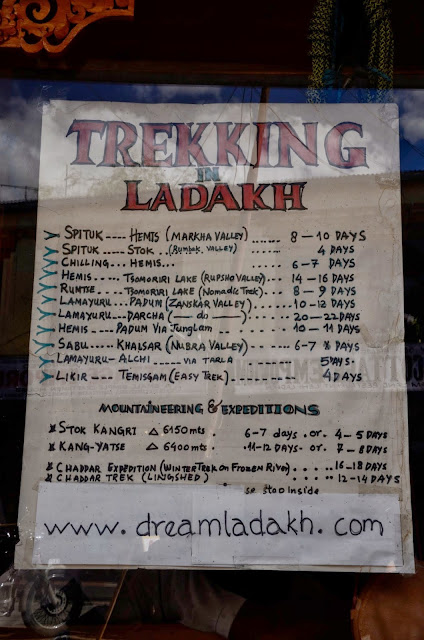 TREKKING
IN
LADAKH
SPITUK ---- HEMIS (MARKHA VALLEY) ...... 8 – 10 DAYS
SPITUK ---- STOK (Rumbak VALLEY) ....... 4 DAYS
CHILLING.... HEMIS.... 6 – 7 DAYS
HEMIS...... TSOMORIRI LAKE (RUPSHO VALLEY) 14 – 16 DAYS
RUMTSE.. TSOMORIRI LAKE (Nomadic Trek). 8 – 9 DAYS
LAMAYURU.. PADUM (ZANSKAR VALLEY) ..... 10 – 12 DAYS
LAMAYURU.. DARCHA (— do —) ....... 20 – 22 DAYS
HEMIS .... PADUM VIA Junglam ..... 10 – 11 DAYS
SABU .... KHALSAR (NUBRA VALLEY) ..... 6 – 7 DAYS
LAMAYURU – ALCHI ..... VIA TARLA 5 DAYS.
LIKIR ..... TEMISGAM (EASY TREK) ......... 4 DAYS
MOUNTAINEERING & EXPEDITIONS
STOK KANGRI △ 6150 mts. 6 – 7 days . or . 4 – 5 DAYS
KANG-YATSE △ 6400 mts. . 11 – 12 DAYS . or 7 – 8 DAYS
CHADDAR EXPEDITION (WINTER TREK ON FROZEN RIVER) ..... 16 – 18 DAYS
CHADDAR TREK (LINGSHED) ....... 12 – 14 DAYS
se stop inside
www.dreamladakh.com